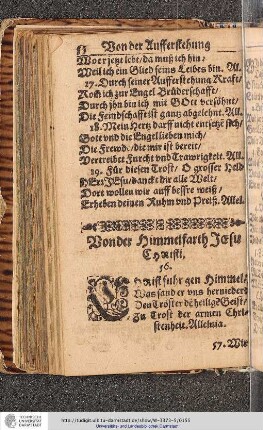 Von der Aufferstehung
Wo er jetzt lebt/ da muß ich hin/
Weil ich ein Glied seins Leibes bin. All.
17. Durch seiner Aufferstehung Krafft/
Kom ich zur Engel Brüderschafft/
Durch jhn bin ich mit GOtt versöhnt/
Die Feindschafft ist gantz abgelehnt. All.
18. Mein Hertz darff nicht entsetzt sich/
Gott vnd die Engel lieben mich/
Die Frewd/ die mir ist bereit/
Vertreibet Furcht vnd Trawrigkeit. All.
19. Für diesen Trost/ O grosser Held
HErr JEsu/ danckt dir alle Welt/
Dort wollen wir auff besser weiß/
Erheben deinen Ruhm vnd Preiß. Allel.
Von der Himmelfarth Jesu
Christi.
16.
CHrist fuhr gen Himmel/
Was sand er vns hernieder?
Den Tröster dē heilige Geist/
Zu Trost der armen Chri-
stenheit. Alleluia.
17. Wie
http://tudigit.ulb.tu-darmstadt.de/show/
Universitäts- und Landesbibliothek Darmstadt